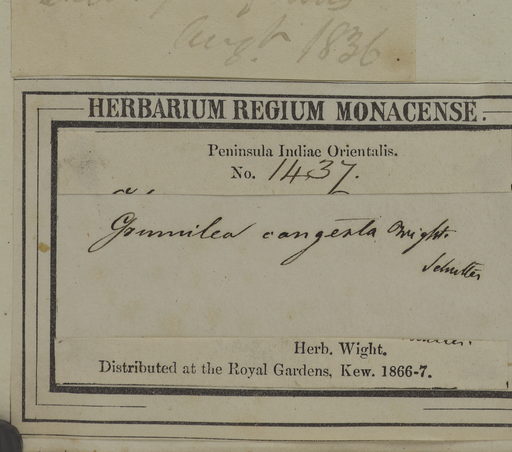 Augst. 1836
HERBARIUM REGIUM MONACENSE.
Peninsula Indiae Orientalis.
No. 1437.
Grumilea congesta Wight.
Herb. Wight.
Distributed at the Royal Gardens, Kew. 1866-7.